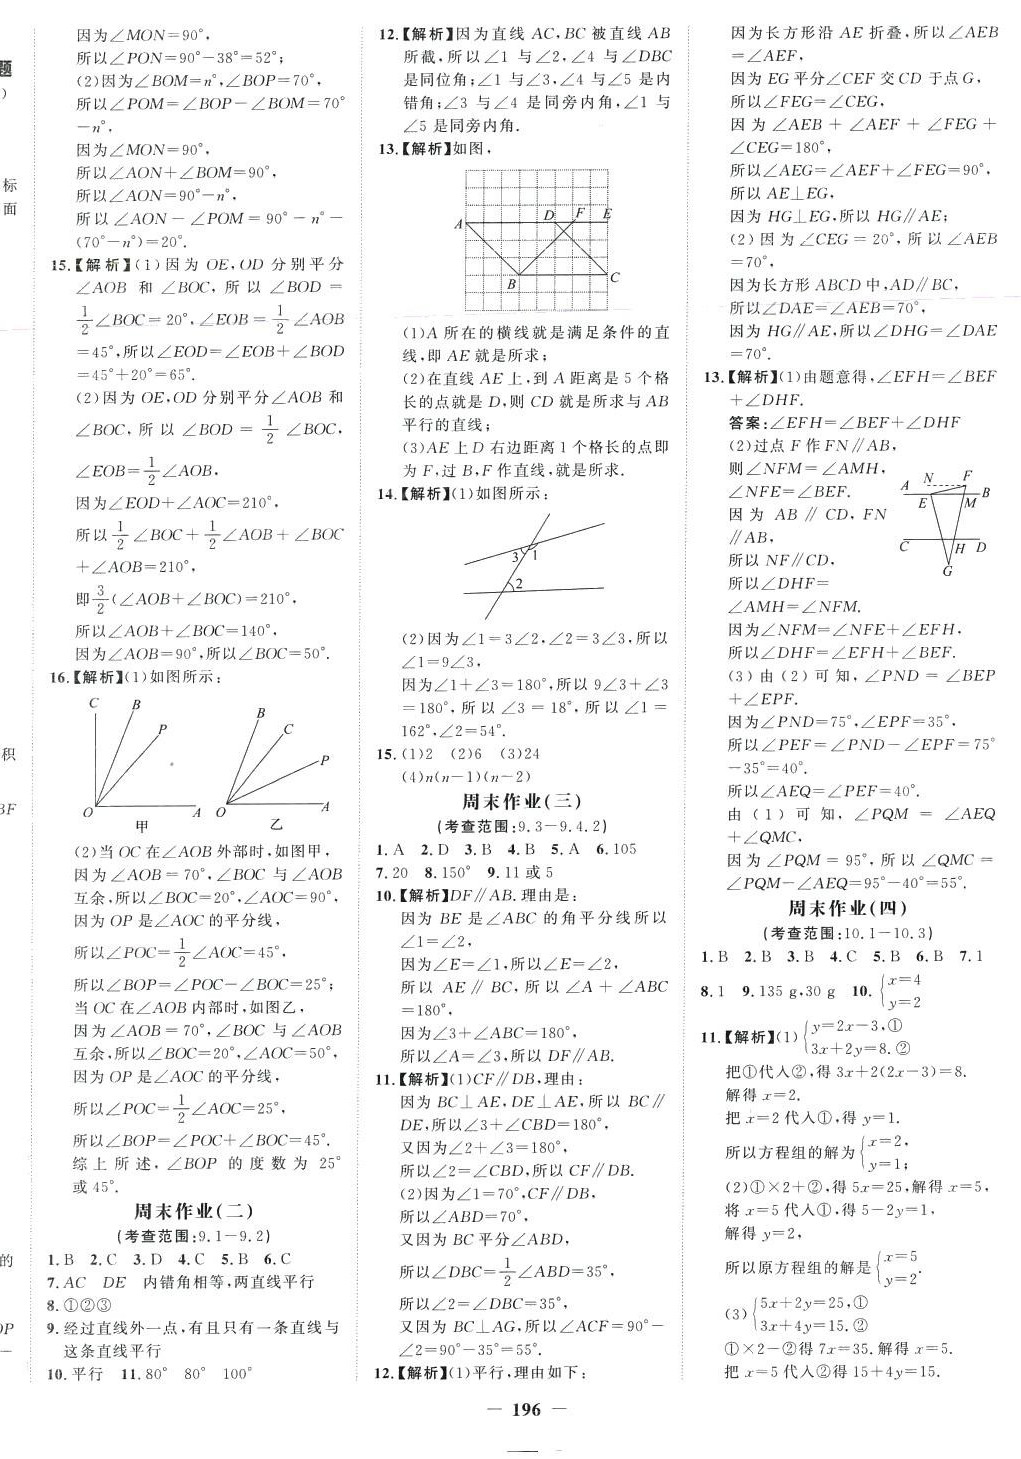 题
)
标
面
积
BF
的
OP
因为∠MON=90°,
所以∠PON=90°-38°=52°;
(2)因为∠BOM=n°,∠BOP=70°,
所以∠POM=∠BOP-∠BOM=70°
-n°.
因为∠MON=90°,
所以∠AON+∠BOM=90°,
所以∠AON=90°-n°,
所以∠AON-∠POM=90°-n°-
(70°-n°)=20°.
15.【解析】(1)因为 OE,OD 分别平分
∠AOB 和 ∠BOC, 所以 ∠BOD =
1/2∠BOC=20°,∠EOB=1/2∠AOB
=45°,所以∠EOD=∠EOB+∠BOD
=45°+20°=65°.
(2)因为 OE,OD 分别平分∠AOB 和
∠BOC, 所以 ∠BOD = 1/2 ∠BOC,
∠EOB=1/2∠AOB,
因为∠EOD+∠AOC=210°,
所以 1/2∠BOC+1/2∠AOB+∠BOC
+∠AOB=210°,
即3/2(∠AOB+∠BOC)=210°,
所以∠AOB+∠BOC=140°,
因为∠AOB=90°,所以∠BOC=50°.
16.【解析】(1)如图所示:
C B P O A 甲
B C P O A 乙
(2)当 OC 在∠AOB 外部时,如图甲,
因为∠AOB=70°,∠BOC 与∠AOB
互余,所以∠BOC=20°,∠AOC=90°,
因为 OP 是∠AOC 的平分线,
所以∠POC=1/2∠AOC=45°,
所以∠BOP=∠POC-∠BOC=25°;
当 OC 在∠AOB 内部时,如图乙,
因为∠AOB=70°,∠BOC 与∠AOB
互余,所以∠BOC=20°,∠AOC=50°,
因为 OP 是∠AOC 的平分线,
所以∠POC=1/2∠AOC=25°,
所以∠BOP=∠POC+∠BOC=45°.
综上所述,∠BOP 的度数为 25°
或 45°.
周末作业(二)
(考查范围:9.1-9.2)
1.B 2.C 3.D 4.C 5.B 6.C
7.AC DE 内错角相等,两直线平行
8.①②③
9.经过直线外一点,有且只有一条直线与
这条直线平行
10.平行 11.80° 80° 100°
12.【解析】因为直线 AC,BC 被直线 AB
所截,所以∠1 与∠2,∠4 与∠DBC
是同位角;∠1 与∠3,∠4 与∠5 是内
错角;∠3 与∠4 是同旁内角,∠1 与
∠5 是同旁内角.
13.【解析】如图,
A D F E B C
(1)A 所在的横线就是满足条件的直
线,即 AE 就是所求;
(2)在直线 AE 上,到 A 距离是 5 个格
长的点就是 D,则 CD 就是所求与 AB
平行的直线;
(3)AE 上 D 右边距离 1 个格长的点即
为 F,过 B,F 作直线,就是所求.
14.【解析】(1)如图所示:
3 1
2
(2)因为∠1=3∠2,∠2=3∠3,所以
∠1=9∠3,
因为∠1+∠3=180°,所以 9∠3+∠3
=180°,所以∠3=18°,所以∠1=
162°,∠2=54°.
15.(1)2 (2)6 (3)24
(4)n(n-1)(n-2)
周末作业(三)
(考查范围:9.3-9.4.2)
1.A 2.D 3.B 4.B 5.A 6.105
7.20 8.150° 9.11 或 5
10.【解析】DF∥AB.理由是:
因为 BE 是∠ABC 的角平分线所以
∠1=∠2,
因为∠E=∠1,所以∠E=∠2,
所以 AE∥BC,所以∠A+∠ABC
=180°,
因为∠3+∠ABC=180°,
所以∠A=∠3,所以 DF∥AB.
11.【解析】(1)CF∥DB,理由:
因为 BC⊥AE,DE⊥AE,所以 BC∥
DE,所以∠3+∠CBD=180°,
又因为∠2+∠3=180°,
所以∠2=∠CBD,所以 CF∥DB.
(2)因为∠1=70°,CF∥DB,
所以∠ABD=70°,
又因为 BC 平分∠ABD,
所以∠DBC=1/2∠ABD=35°,
所以∠2=∠DBC=35°,
又因为 BC⊥AG,所以∠ACF=90°-
∠2=90°-35°=55°.
12.【解析】(1)平行,理由如下:
因为长方形沿 AE 折叠,所以∠AEB
=∠AEF,
因为 EG 平分∠CEF 交 CD 于点 G,
所以∠FEG=∠CEG,
因为∠AEB+∠AEF+∠FEG+
∠CEG=180°,
所以∠AEG=∠AEF+∠FEG=90°,
所以 AE⊥EG,
因为 HG⊥EG,所以 HG∥AE;
(2)因为∠CEG=20°,所以∠AEB
=70°,
因为长方形 ABCD 中,AD∥BC,
所以∠DAE=∠AEB=70°,
因为 HG∥AE,所以∠DHG=∠DAE
=70°.
13.【解析】(1)由题意得,∠EFH=∠BEF
+∠DHF.
答案:∠EFH=∠BEF+∠DHF
(2)过点 F 作 FN∥AB,
则∠NFM=∠AMH,
∠NFE=∠BEF.
因为 AB∥CD,FN
∥AB,
所以 NF∥CD,
所以∠DHF=
∠AMH=∠NFM.
A N F B E M C H D G
因为∠NFM=∠NFE+∠EFH,
所以∠DHF=∠EFH+∠BEF.
(3)由(2)可知,∠PND=∠BEP
+∠EPF.
因为∠PND=75°,∠EPF=35°,
所以∠PEF=∠PND-∠EPF=75°
-35°=40°.
所以∠AEQ=∠PEF=40°.
由(1)可知,∠PQM=∠AEQ
+∠QMC,
因为∠PQM=95°,所以∠QMC=
∠PQM-∠AEQ=95°-40°=55°.
周末作业(四)
(考查范围:10.1-10.3)
1.B 2.B 3.B 4.C 5.B 6.B 7.1
8.1 9.135 g,30 g 10.{x=4
y=2
11.【解析】(1){y=2x-3,①
3x+2y=8.②
把①代入②,得 3x+2(2x-3)=8.
解得 x=2.
把 x=2 代入①,得 y=1.
所以方程组的解为{x=2,
y=1;
(2)①×2+②,得 5x=25,解得 x=5,
将 x=5 代入①,得 5-2y=1,
解得 y=2,
所以原方程组的解是{x=5
y=2.
(3){5x+2y=25,①
3x+4y=15.②
①×2-②得 7x=35.解得 x=5.
把 x=5 代入②得 15+4y=15.
— 196 —